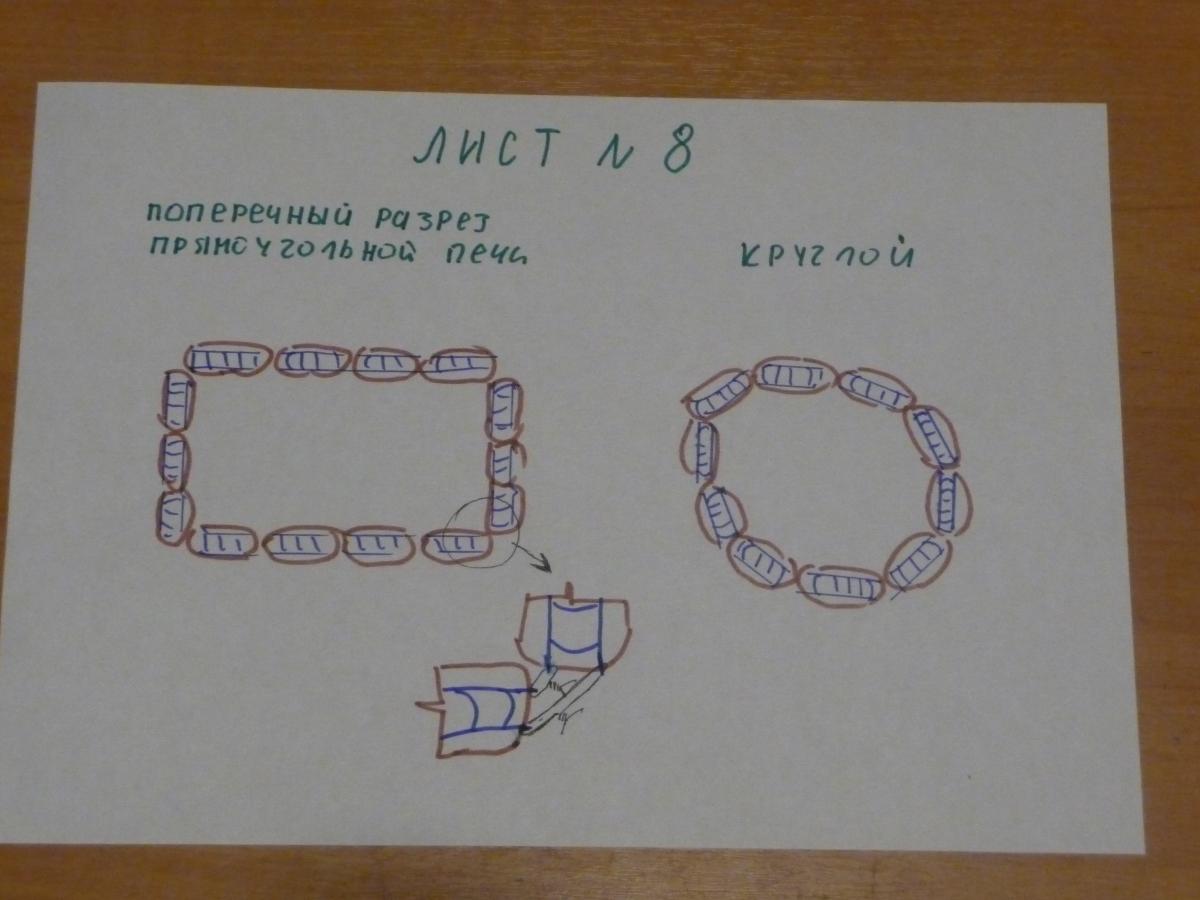 ЛИСТ N 8
ПОПЕРЕЧНЫЙ РАЗРЕЗ
ПРЯМОУГОЛЬНОЙ ПЕЧИ
КРУГЛОЙ